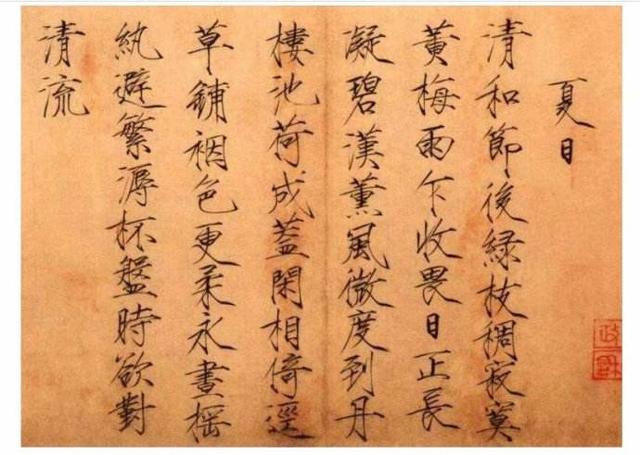 夏日
清和節後緑枝稠寂寞
黄梅雨乍收畏日正長
凝碧漢薰風微度到丹
樓池荷成蓋閑相倚逕
草鋪裀色更柔永晝搖
紈避繁溽杯盤時欲對
清流